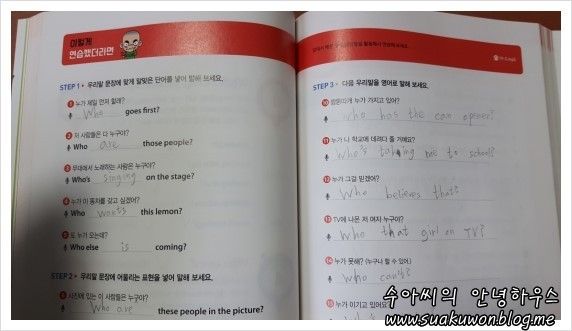 이렇게
연습했더라면
STEP 1 우리말 문장에 맞게 알맞은 단어를 넣어 말해 보세요.
1 누가 제일 먼저 할래?
Who goes first?
2 저 사람들은 다 누구야?
Who are those people?
3 무대에서 노래하는 사람은 누구야?
Who's singing on the stage?
4 누가 이
갖고 싶겠어?
Who wants this lemon?
5 또 누가 오는데?
Who else is coming?
STEP 2 우리말 문장에 어울리는 표현을 넣어 말해 보세요.
6 사진에 있는 이 사람들은 누구야?
Who are these people in the picture?
STEP 3 다음 우리말을 영어로 말해 보세요.
10
누가 가지고 있어?
who has the can opener?
11 누가 나 학교에 데려다 줄 거예요?
Who's taking me to school?
12 누가 그걸 믿겠어?
Who believes that?
13 TV에 나온 저 여자 누구야?
Who that girl on TV?
14 누가 못해? (누구나 할 수 있어)
Who can't?
15 누가 이기고 있어요?
수아씨의 안녕하우스
www.suakuwon.blog.me